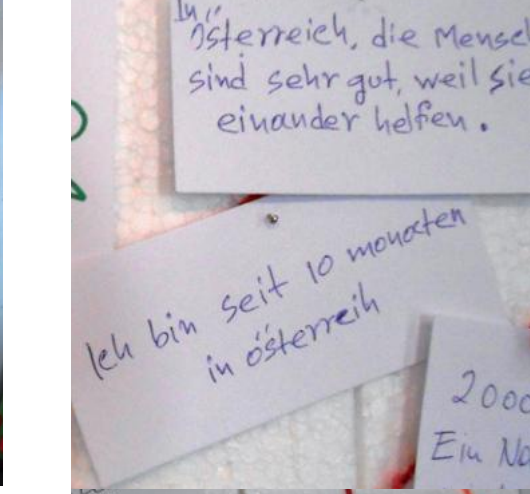 In
Österreich, die Mensch
sind sehr gut, weil sie
einander helfen.
Ich bin seit 10 monaten
in österreih
2000
Ein No